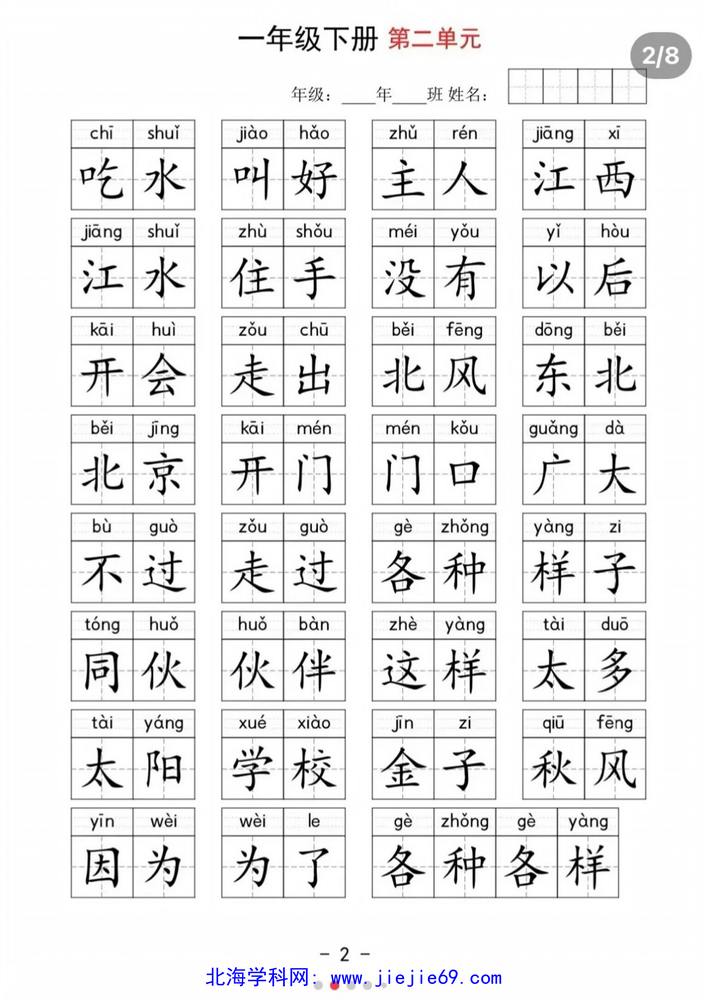 一年级下册 第二单元
2/8
年级：____年____班 姓名：
chī shuǐ jiào hǎo zhǔ rén jiāng xī
吃水 叫好 主人 江西
jiāng shuǐ zhù shǒu méi yǒu yǐ hòu
江水 住手 没有 以后
kāi huì zǒu chū běi fēng dōng běi
开会 走出 北风 东北
běi jīng kāi mén mén kǒu guǎng dà
北京 开门 门口 广大
bù guò zǒu guò gè zhǒng yàng zi
不过 走过 各种 样子
tóng huǒ huǒ bàn zhè yàng tài duō
同伙 伙伴 这样 太多
tài yáng xué xiào jīn zi qiū fēng
太阳 学校 金子 秋风
yīn wèi wèi le gè zhǒng gè yàng
因为 为了 各种各样
- 2 -
北海学科网: www.jiejie69.com